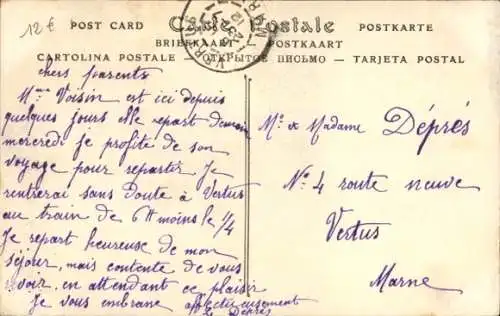 12€
POST CARD Carte Postale POSTKARTE
BRIEFKAART POSTKAART
CARTOLINA POSTALE ОТКРЫТОЕ ПИСЬМО — TARJETA POSTAL
VERTUS
chers parents
Mme Voisin est ici depuis
quelques jours elle repart demain
mercredi je profite de son
voyage pour repartir Je
rentrerai sans doute à Vertus
au train de 6H moins le 1/4
Je repart heureuse de mon
séjour, mais contente de vous
revoir, en attendant ce plaisir
Je vous embrane affectueusement
Déprés
Mr & Madame Déprés
No 4 route neuve
Vertus
Marne